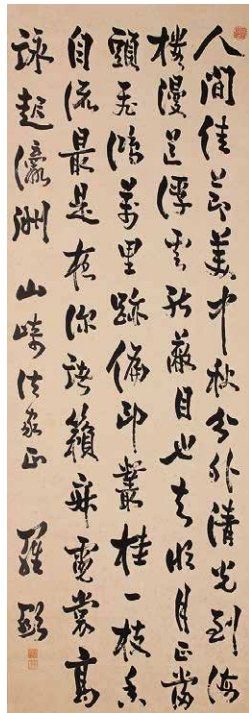 人間佳節美中秋分外清光到海
樓漫道浮雲能蔽目也知明月正當
頭飛鴻萬里跡偏印叢桂一枝香
自流最是夜深諸籟寂霓裳高
詠起瀛洲 山崎法家正 羅